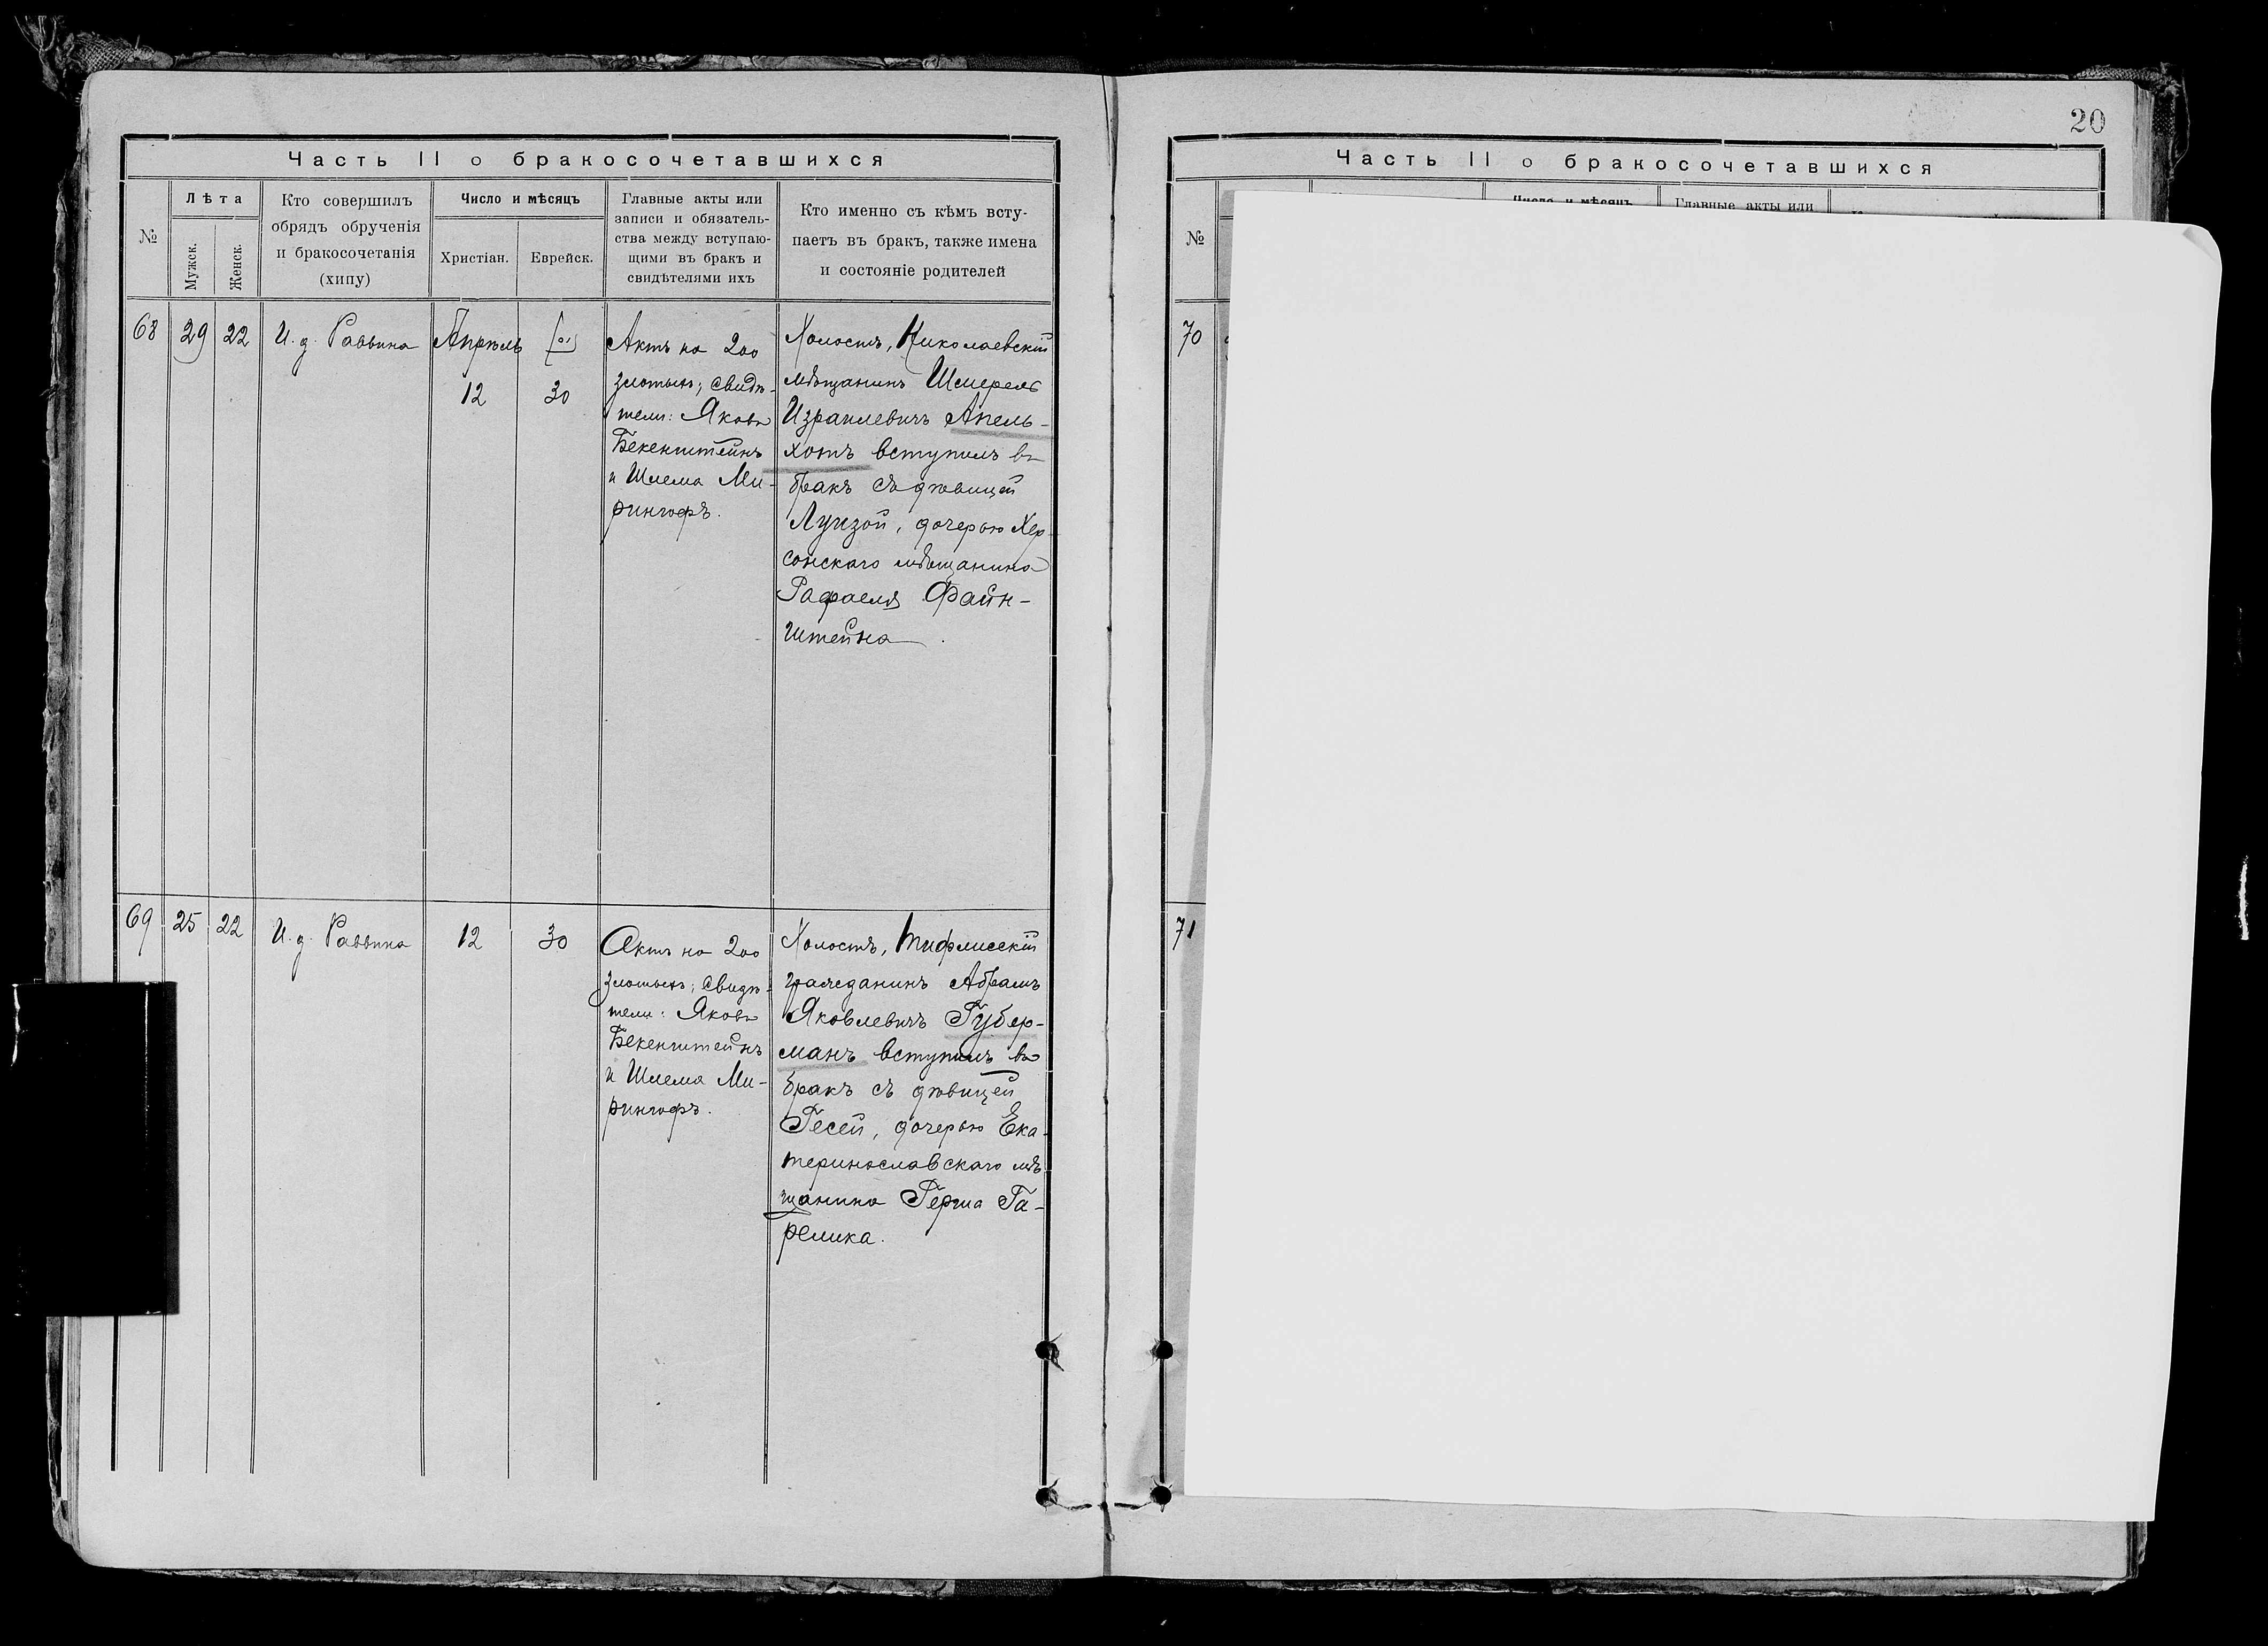 Часть II о бракосочетавшихся
№
Лѣта
Мужск.
Женск.
Кто совершилъ
обрядъ обрученія
и бракосочетанія
(хипу)
Число и мѣсяцъ
Христіан.
Еврейск.
Главные акты или
записи и обязатель-
ства между вступаю-
щими въ бракъ и
свидѣтелями ихъ
Кто именно съ кѣмъ всту-
паетъ въ бракъ, также имена
и состояніе родителей
68
29
22
И. д. Раввина
Апрѣль
12
30
Актъ на 200
злотыхъ; свидѣ-
тели: Яковъ
Бекенштейнъ
и Шлема Ми-
рингофъ.
Холостъ, Николаевскій
мѣщанинъ Шмерель
Израилевичъ Апель-
хотъ вступилъ въ
бракъ съ дѣвицей
Луизой, дочерью Хер-
сонскаго мѣщанина
Рафаеля Файн-
штейна.
69
25
22
И. д. Раввина
12
30
Актъ на 200
злотыхъ; свидѣ-
тели: Яковъ
Бекенштейнъ
и Шлема Ми-
рингофъ.
Холостъ, Тифлисскій
гражданинъ Абрамъ
Яковлевичъ Губер-
манъ вступилъ въ
бракъ съ дѣвицей
Гесей, дочерью Ека-
теринославскаго мѣ-
щанина Герша Га-
релика.
20
Часть II о бракосочетавшихся
№
Число и мѣсяцъ
Главные акты или
70
71